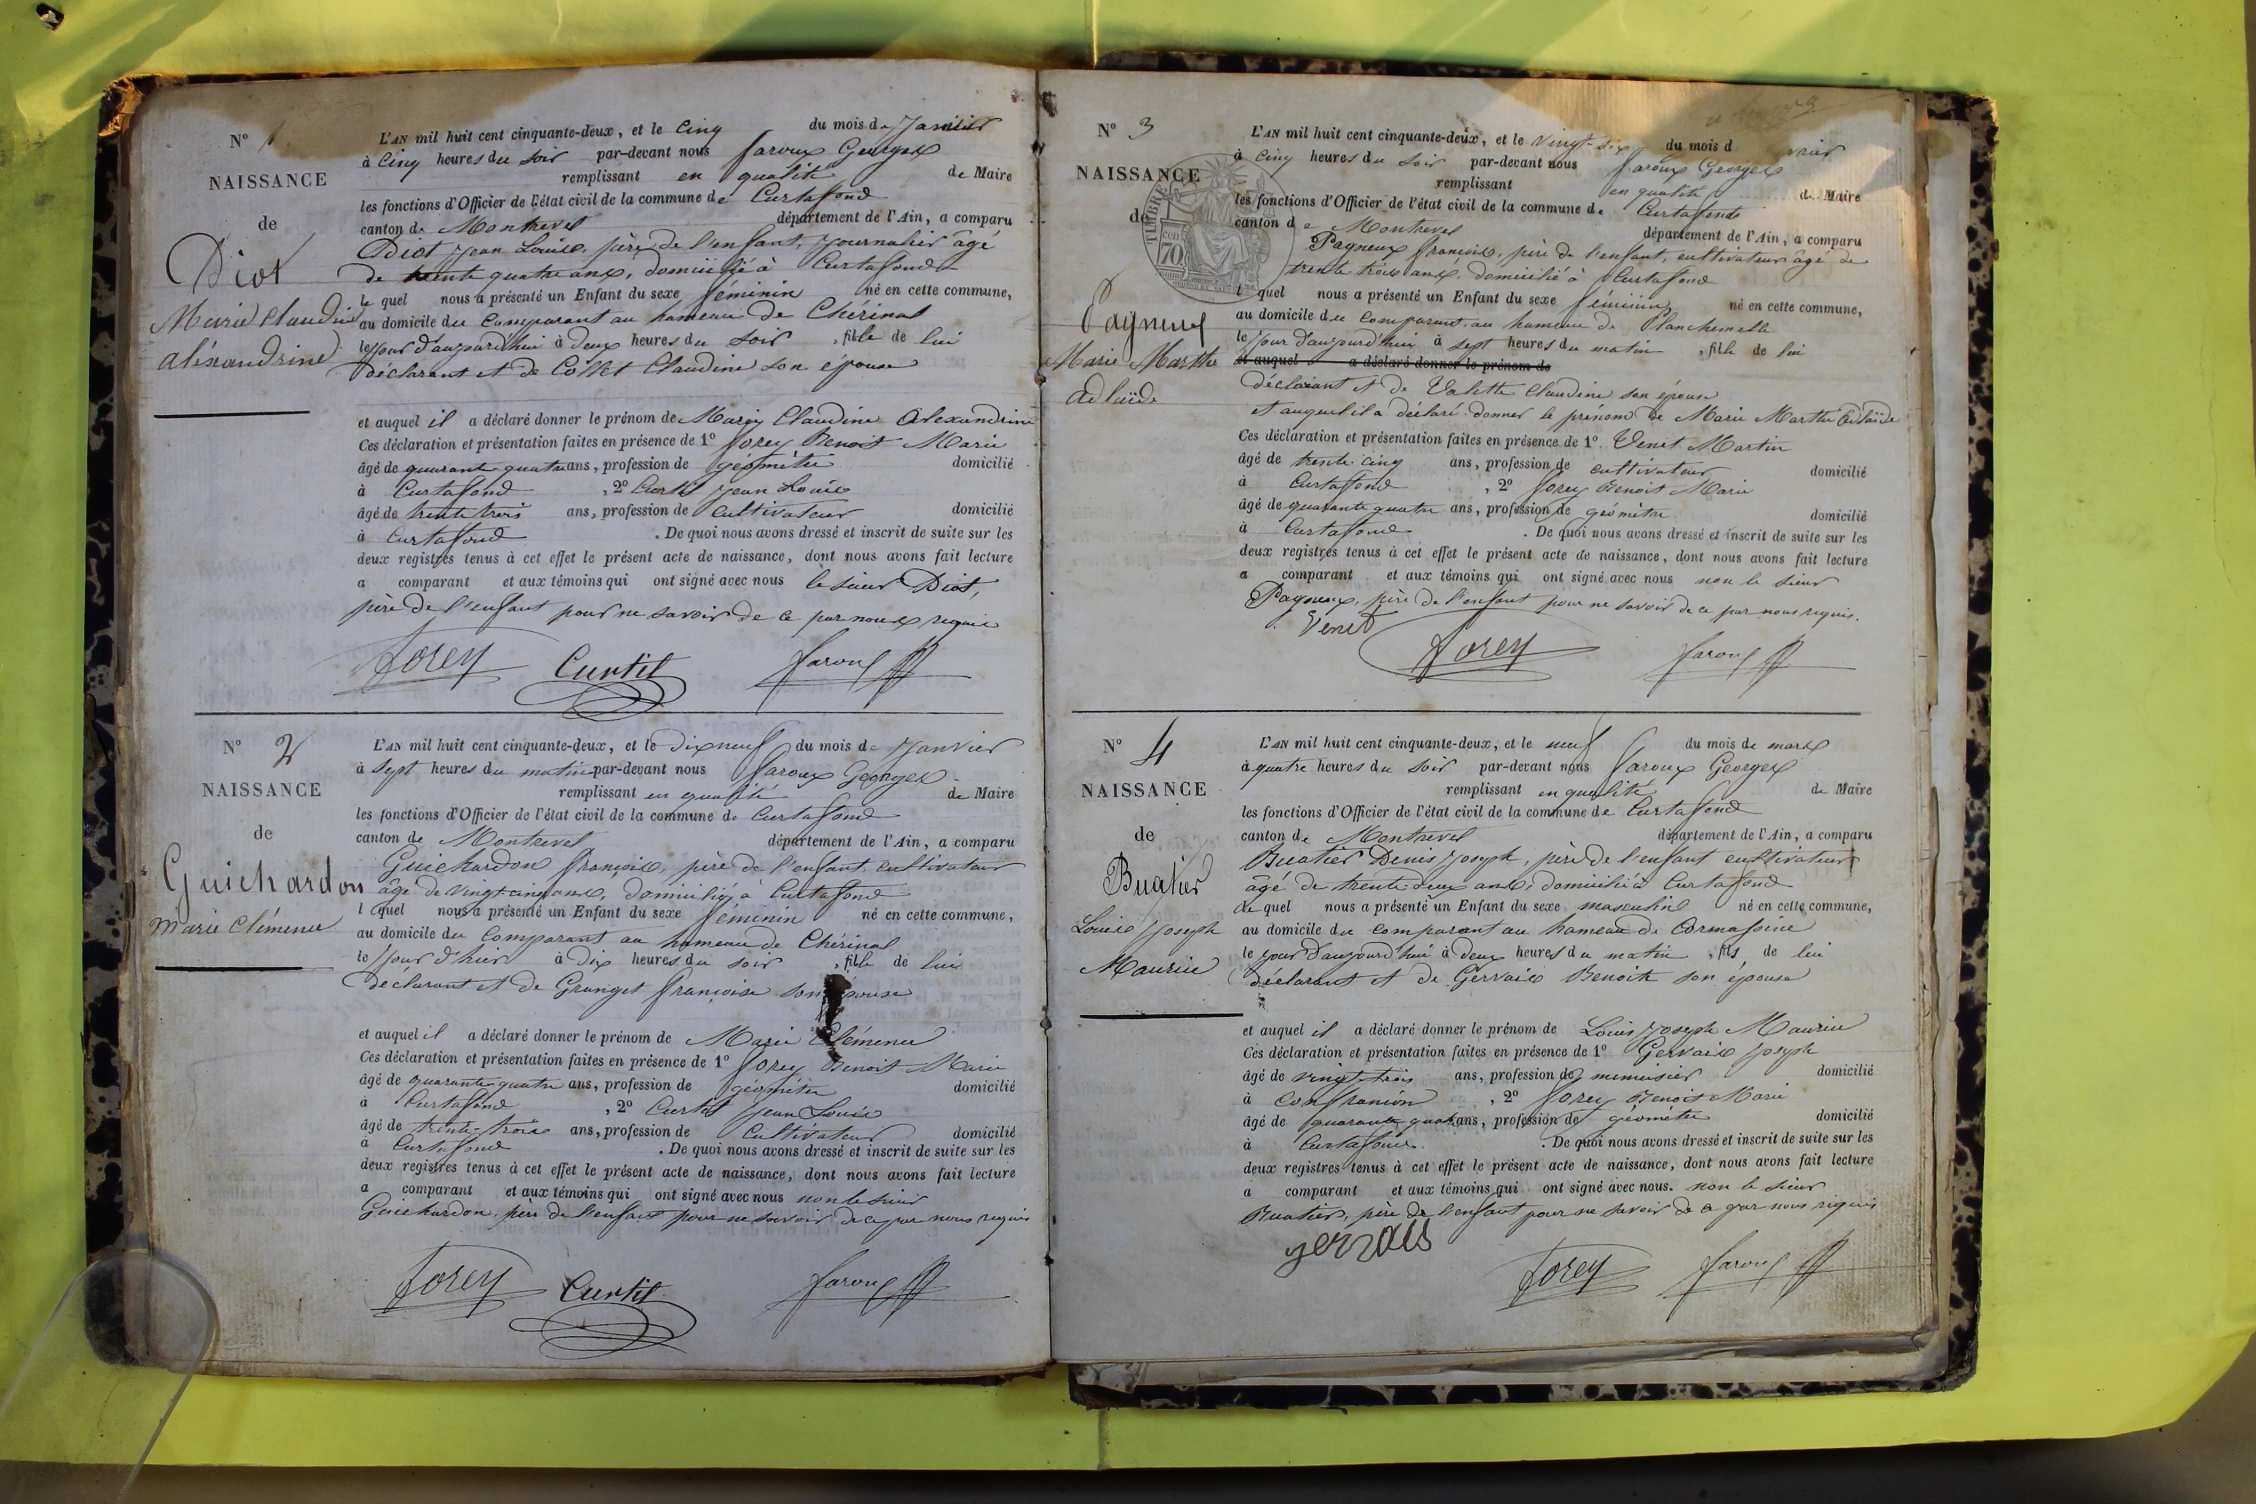 N° 1
NAISSANCE
de
Diot
Marie Claudine
aléxandrine
L'AN mil huit cent cinquante-deux, et le cinq du mois de Janvier
à cinq heures du soir par-devant nous faroux Georges
remplissant en qualité de Maire
les fonctions d'Officier de l'état civil de la commune de Curtafond
canton de Montrevel département de l'Ain, a comparu
Diot Jean Louis, père de l'enfant, journalier âgé
de trente quatre ans, domicilié à Curtafond
le quel nous a présenté un Enfant du sexe féminin né en cette commune,
au domicile du comparant au hameau de Chérinal
le jour d'aujourd'hui à deux heures du soir, fille de lui
déclarant et de Collet Claudine son épouse
et auquel il a déclaré donner le prénom de Marie Claudine Alexandrine
Ces déclaration et présentation faites en présence de 1° forey Benoit Marie
âgé de quarante quatre ans, profession de géomètre domicilié
à Curtafond, 2° Curtil Jean Louis
âgé de trente trois ans, profession de cultivateur domicilié
à Curtafond. De quoi nous avons dressé et inscrit de suite sur les
deux registres tenus à cet effet le présent acte de naissance, dont nous avons fait lecture
a comparant et aux témoins qui ont signé avec nous le sieur Diot,
père de l'enfant pour ne savoir de ce par nous requis
forey Curtil faroux
N° 2
NAISSANCE
de
Guichardon
Marie Clémence
L'AN mil huit cent cinquante-deux, et le dix neuf du mois de Janvier
à sept heures du matin par-devant nous faroux Georges
remplissant en qualité de Maire
les fonctions d'Officier de l'état civil de la commune de Curtafond
canton de Montrevel département de l'Ain, a comparu
Guichardon françois, père de l'enfant, cultivateur
âgé de vingt cinq ans, domicilié à Curtafond
l equel nous a présenté un Enfant du sexe féminin né en cette commune,
au domicile du comparant au hameau de Chérinal
le jour d'hier à dix heures du soir, fille de lui
déclarant et de Granget françoise son épouse
et auquel il a déclaré donner le prénom de Marie Clémence
Ces déclaration et présentation faites en présence de 1° forey Benoit Marie
âgé de quarante-quatre ans, profession de géomètre domicilié
à Curtafond, 2° Curtil Jean Louis
âgé de trente-trois ans, profession de cultivateur domicilié
à Curtafond. De quoi nous avons dressé et inscrit de suite sur les
deux registres tenus à cet effet le présent acte de naissance, dont nous avons fait lecture
a comparant et aux témoins qui ont signé avec nous non le sieur
Guichardon, père de l'enfant pour ne savoir de ce par nous requis
forey Curtil faroux
N° 3
NAISSANCE
de
TIMBRE
70
Pagneux
Marie Marthe
adelaïde
L'AN mil huit cent cinquante-deux, et le vingt-six du mois d vrier
à cinq heures du soir par-devant nous faroux Georges
remplissant en qualité de Maire
les fonctions d'Officier de l'état civil de la commune de Curtafond
canton de Montrevel département de l'Ain, a comparu
Pagneux françois, père de l'enfant, cultivateur âgé de
trente trois ans, domicilié à Curtafond
l quel nous a présenté un Enfant du sexe féminin né en cette commune,
au domicile du comparant au hameau de Planchemelle
le jour d'aujourd'hui à sept heures du matin, fille de lui
et auquel a déclaré donner le prénom de
déclarant et de Valette Claudine son épouse
et auquel il a déclaré donner le prénom de Marie Marthe Adelaïde
Ces déclaration et présentation faites en présence de 1° Venet Martin
âgé de trente cinq ans, profession de cultivateur domicilié
à Curtafond, 2° forey Benoit Marie
âgé de quarante quatre ans, profession de géomètre domicilié
à Curtafond. De quoi nous avons dressé et inscrit de suite sur les
deux registres tenus à cet effet le présent acte de naissance, dont nous avons fait lecture
a comparant et aux témoins qui ont signé avec nous non le sieur
Pagneux, père de l'enfant pour ne savoir de ce par nous requis.
Venet forey faroux
N° 4
NAISSANCE
de
Buatier
Louis Joseph
Maurice
L'AN mil huit cent cinquante-deux, et le neuf du mois de mars
à quatre heures du soir par-devant nous faroux Georges
remplissant en qualité de Maire
les fonctions d'Officier de l'état civil de la commune de Curtafond
canton de Montrevel département de l'Ain, a comparu
Buatier Denis Joseph, père de l'enfant cultivateur
âgé de trente-deux ans, domicilié à Curtafond
le quel nous a présenté un Enfant du sexe masculin né en cette commune,
au domicile du comparant au hameau de Cormassine
le jour d'aujourd'hui à deux heures du matin, fils de lui
déclarant et de Gervais Benoite son épouse
et auquel il a déclaré donner le prénom de Louis Joseph Maurice
Ces déclaration et présentation faites en présence de 1° Gervais Joseph
âgé de vingt-trois ans, profession de menuisier domicilié
à Confrançon, 2° forey Benoit Marie
âgé de quarante quatre ans, profession de géomètre domicilié
à Curtafond. De quoi nous avons dressé et inscrit de suite sur les
deux registres tenus à cet effet le présent acte de naissance, dont nous avons fait lecture
a comparant et aux témoins qui ont signé avec nous. non le sieur
Buatier, père de l'enfant pour ne savoir de ce par nous requis
gervais
forey faroux